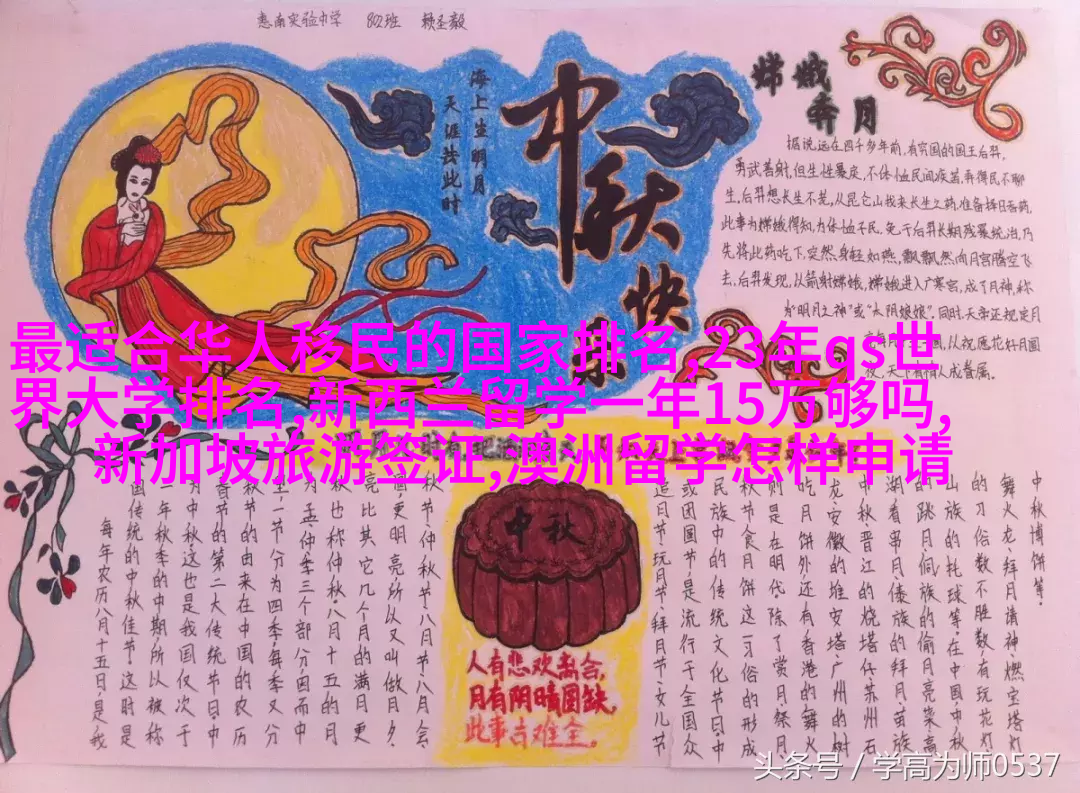 惠南实验中学 802班 赖圣毅
海上生明月
天涯共此时
中秋快乐
嫦娥
奔月
据说,远在四千多年前,有穷国的国王后羿,
勇武善射,但生性暴戾,不体恤民间疾苦,弄得民不聊
生,后羿想长生不死,从昆仑山找来长生之药,准备择日吞药,
此事为嫦娥得知,为体恤平民,免于后羿长期残暴统治,乃
先将此药吃下,突然身轻如燕,飘飘然向月宫腾空飞
去,后羿发现,以箭射嫦娥,嫦娥进入广寒宫,成了月神,称
为"明月之神"或"太阴娘娘"。同时,天帝还规定月
从祝愿花好月圆
夜,天下有情人成眷属。
最适合华人移民的国家排名,23年qs世
界大学排名,新西兰留学一年15万够吗,
新加坡旅游签证,澳洲留学怎样申请
每年农历八月十五日,是我
国传统的中秋佳节。这时是
年秋季的中期,所以被称
中秋。这也是我国仅次于
春节的第二大传统节日。中
秋节的由来在中国的农历
一节分为四季,每季又分
为孟、仲、季三个部分,因而中
秋也称仲秋。八月十五的月
亮比其它几个月的满月更
圆,更明亮,所以又叫做月夕、
秋节、仲秋节、八月节、八月会
追月节、玩月节、拜月节、女儿节
或团圆节,是流行于全国众
民族中的传统文化节日。中
秋节食月饼这一习俗的形成
则是在明代。除了赏月、祭月
吃月饼外,还有香港的舞火
龙、安徽的堆宝塔、广州的树
中秋、晋江的烧塔仔、苏州石
湖看串月、傣族的拜月、苗族
的跳月、侗族的偷月亮菜、高
山族的托球等,在中国,中秋
的习俗数不胜数,有玩花灯
舞火龙、拜月请神、燃宝塔灯
中秋博饼等。
中秋
人有悲欢离合,
月有阴晴圆缺,
此事古难全。
头条号 / 学高为师0537